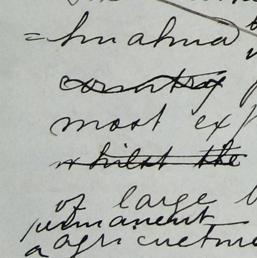 country
most ex
whilst the
of large
permanent
agricultur